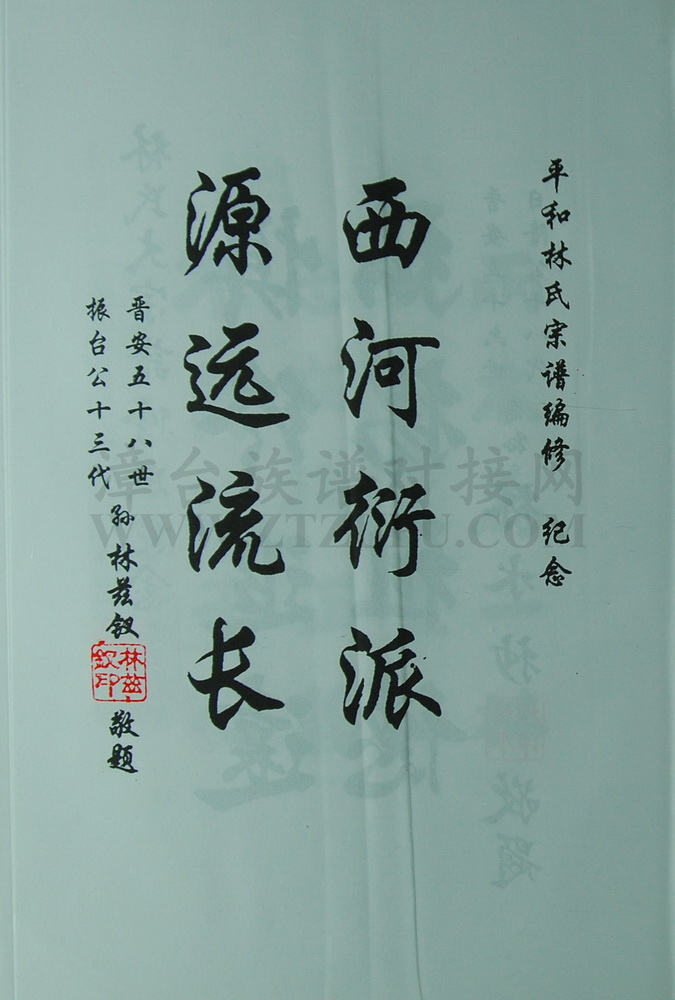 平和林氏宗谱编修 纪念
西河衍派
源远流长
晋安五十八世
振台公十三代
孙林兹钗
林兹钗印
敬题
漳台族谱对接网